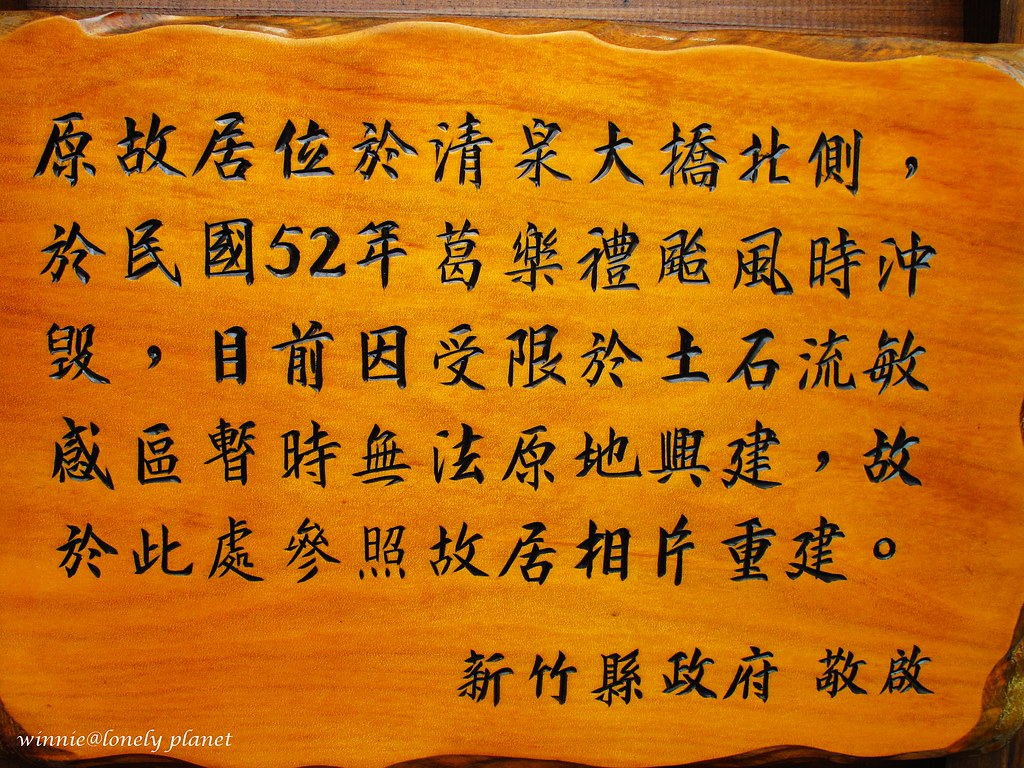 原故居位於清泉大橋北側，
於民國52年葛樂禮颱風時沖
毀，目前因受限於土石流敏
感區暫時無法原地興建，故
於此處參照故居相片重建。
新竹縣政府 敬啟
winnie@lonely planet